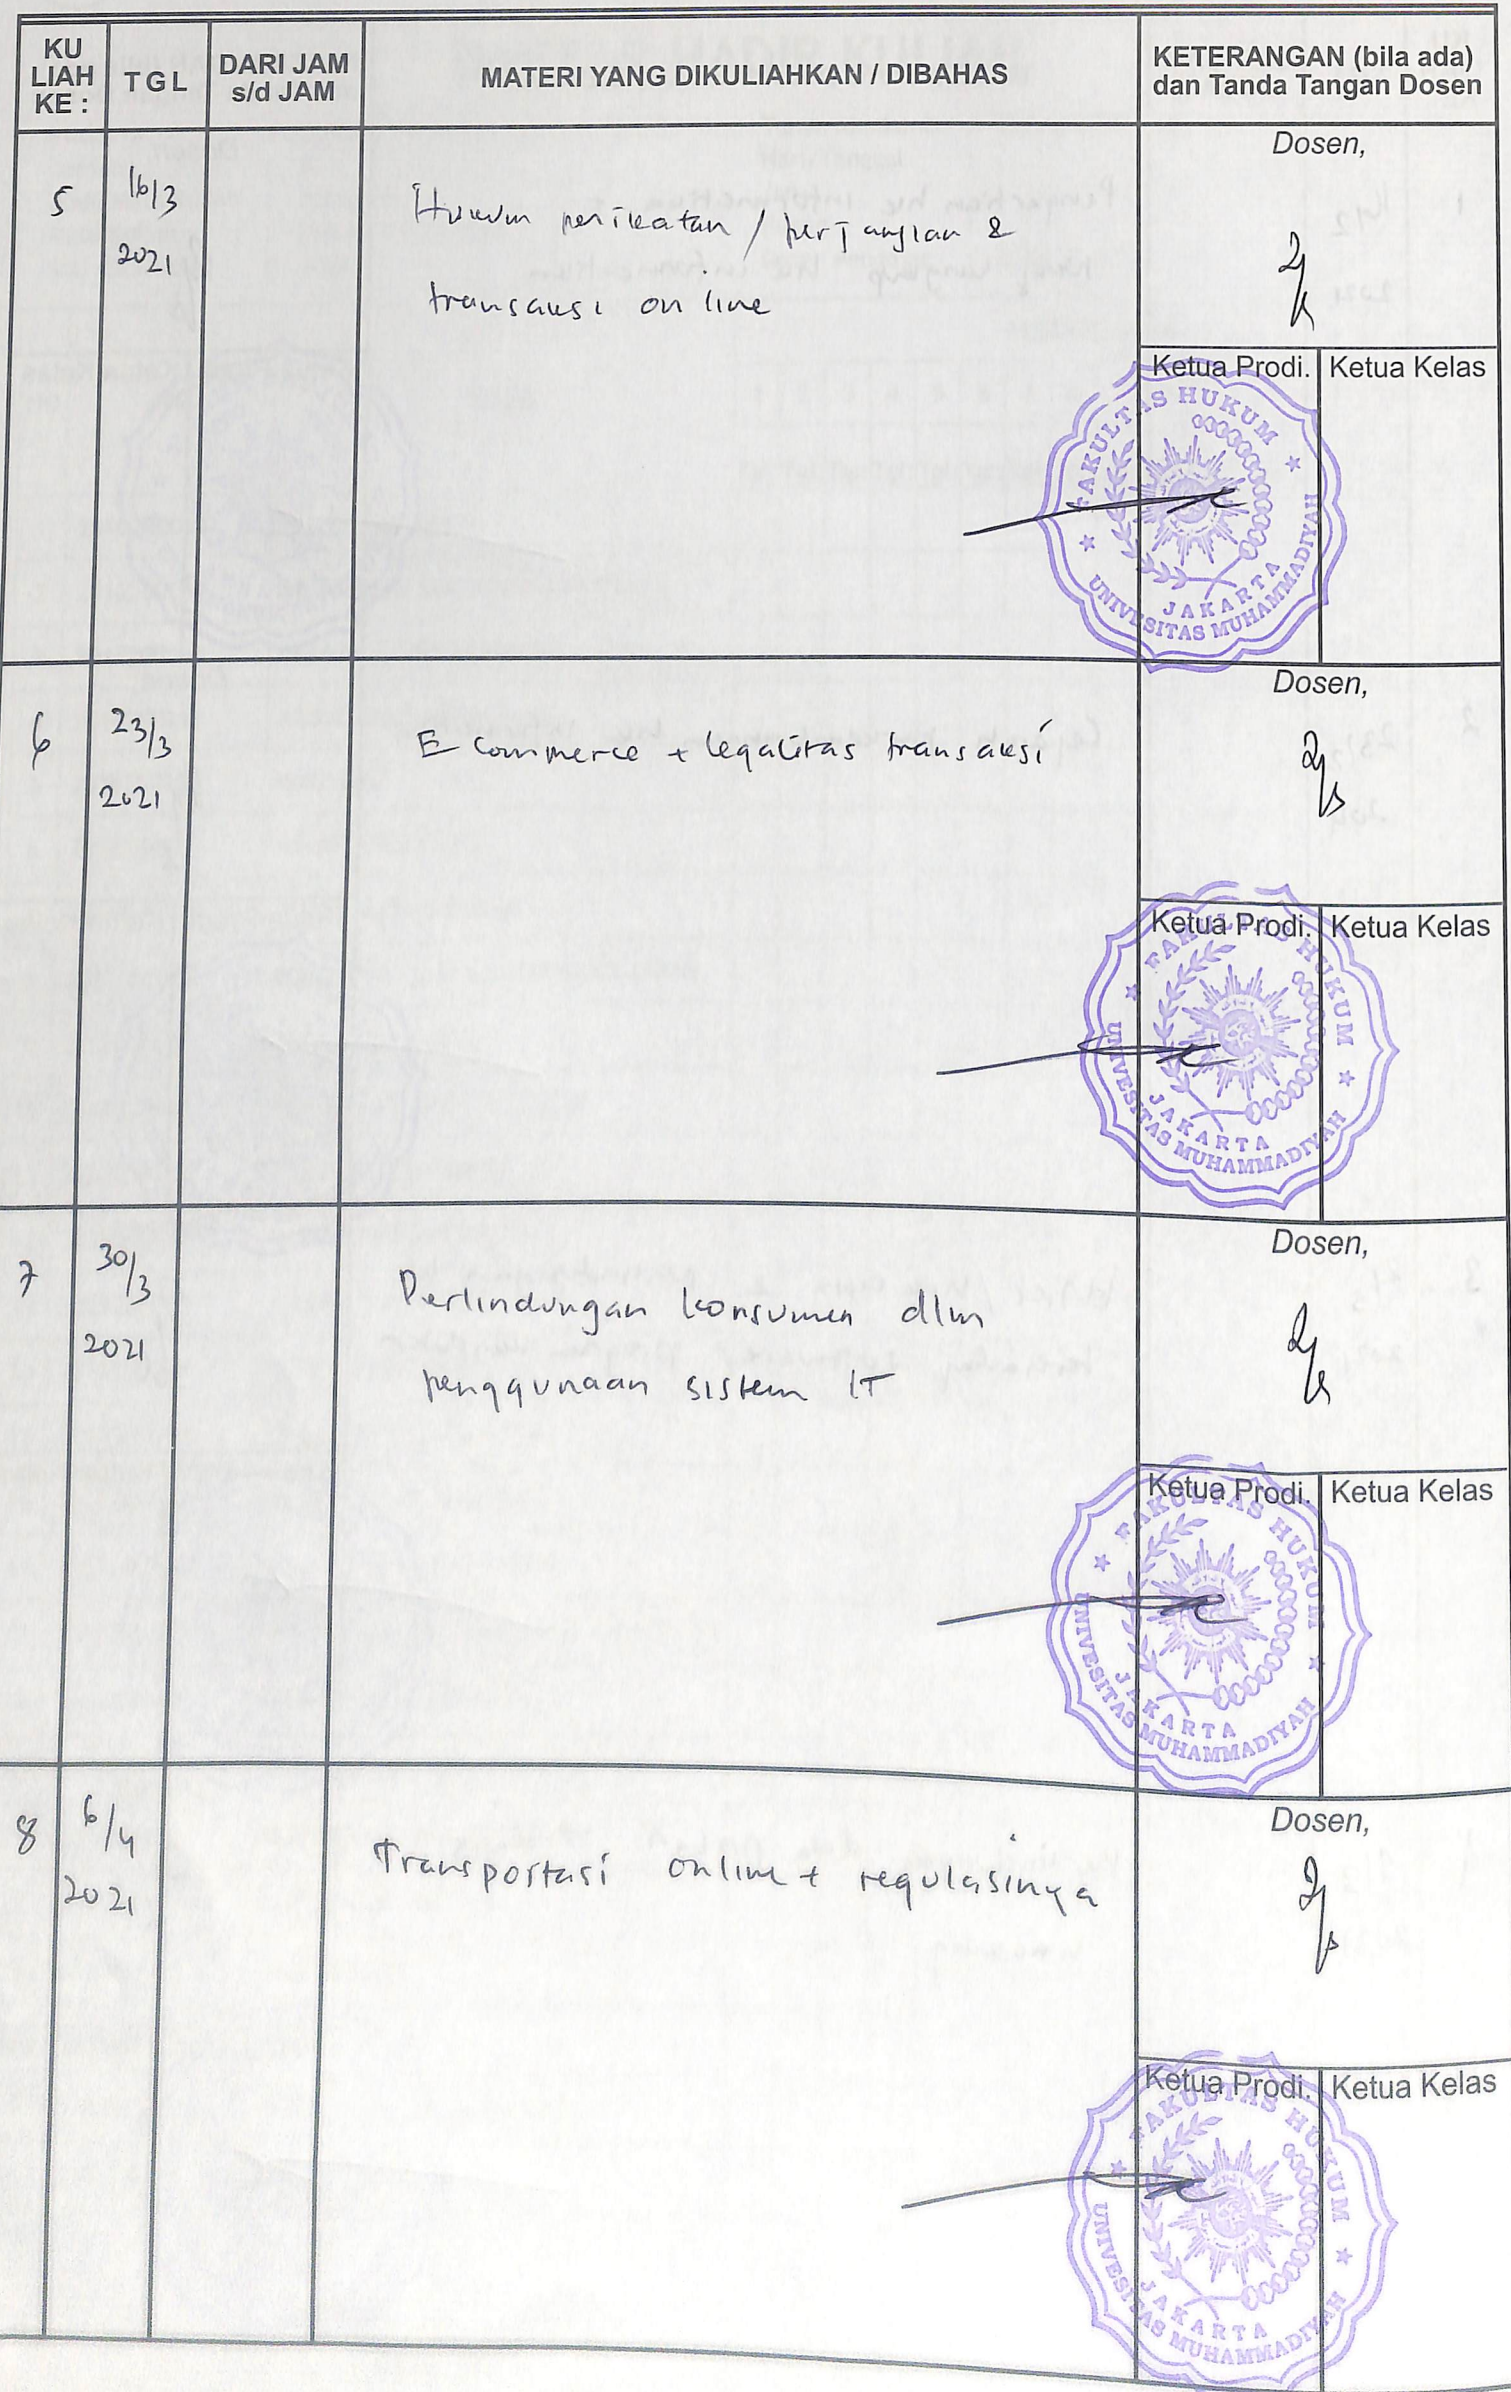 KU LIAH KE :
T G L
DARI JAM s/d JAM
MATERI YANG DIKULIAHKAN / DIBAHAS
KETERANGAN (bila ada) dan Tanda Tangan Dosen
5
16/3
2021
Hukum perikatan / perjanjian &
transaksi online
Dosen,
Ketua Prodi.
Ketua Kelas
FAKULTAS HUKUM
UNIVESITAS MUHAMMADIYAH
JAKARTA
6
23/3
2021
E commerce + legalitas transaksi
Dosen,
Ketua Prodi.
Ketua Kelas
FAKULTAS HUKUM
UNIVESITAS MUHAMMADIYAH
JAKARTA
7
30/3
2021
Perlindungan konsumen dlm
penggunaan sistem IT
Dosen,
Ketua Prodi.
Ketua Kelas
FAKULTAS HUKUM
UNIVESITAS MUHAMMADIYAH
JAKARTA
8
6/4
2021
Transportasi online + regulasinya
Dosen,
Ketua Prodi.
Ketua Kelas
FAKULTAS HUKUM
UNIVESITAS MUHAMMADIYAH
JAKARTA